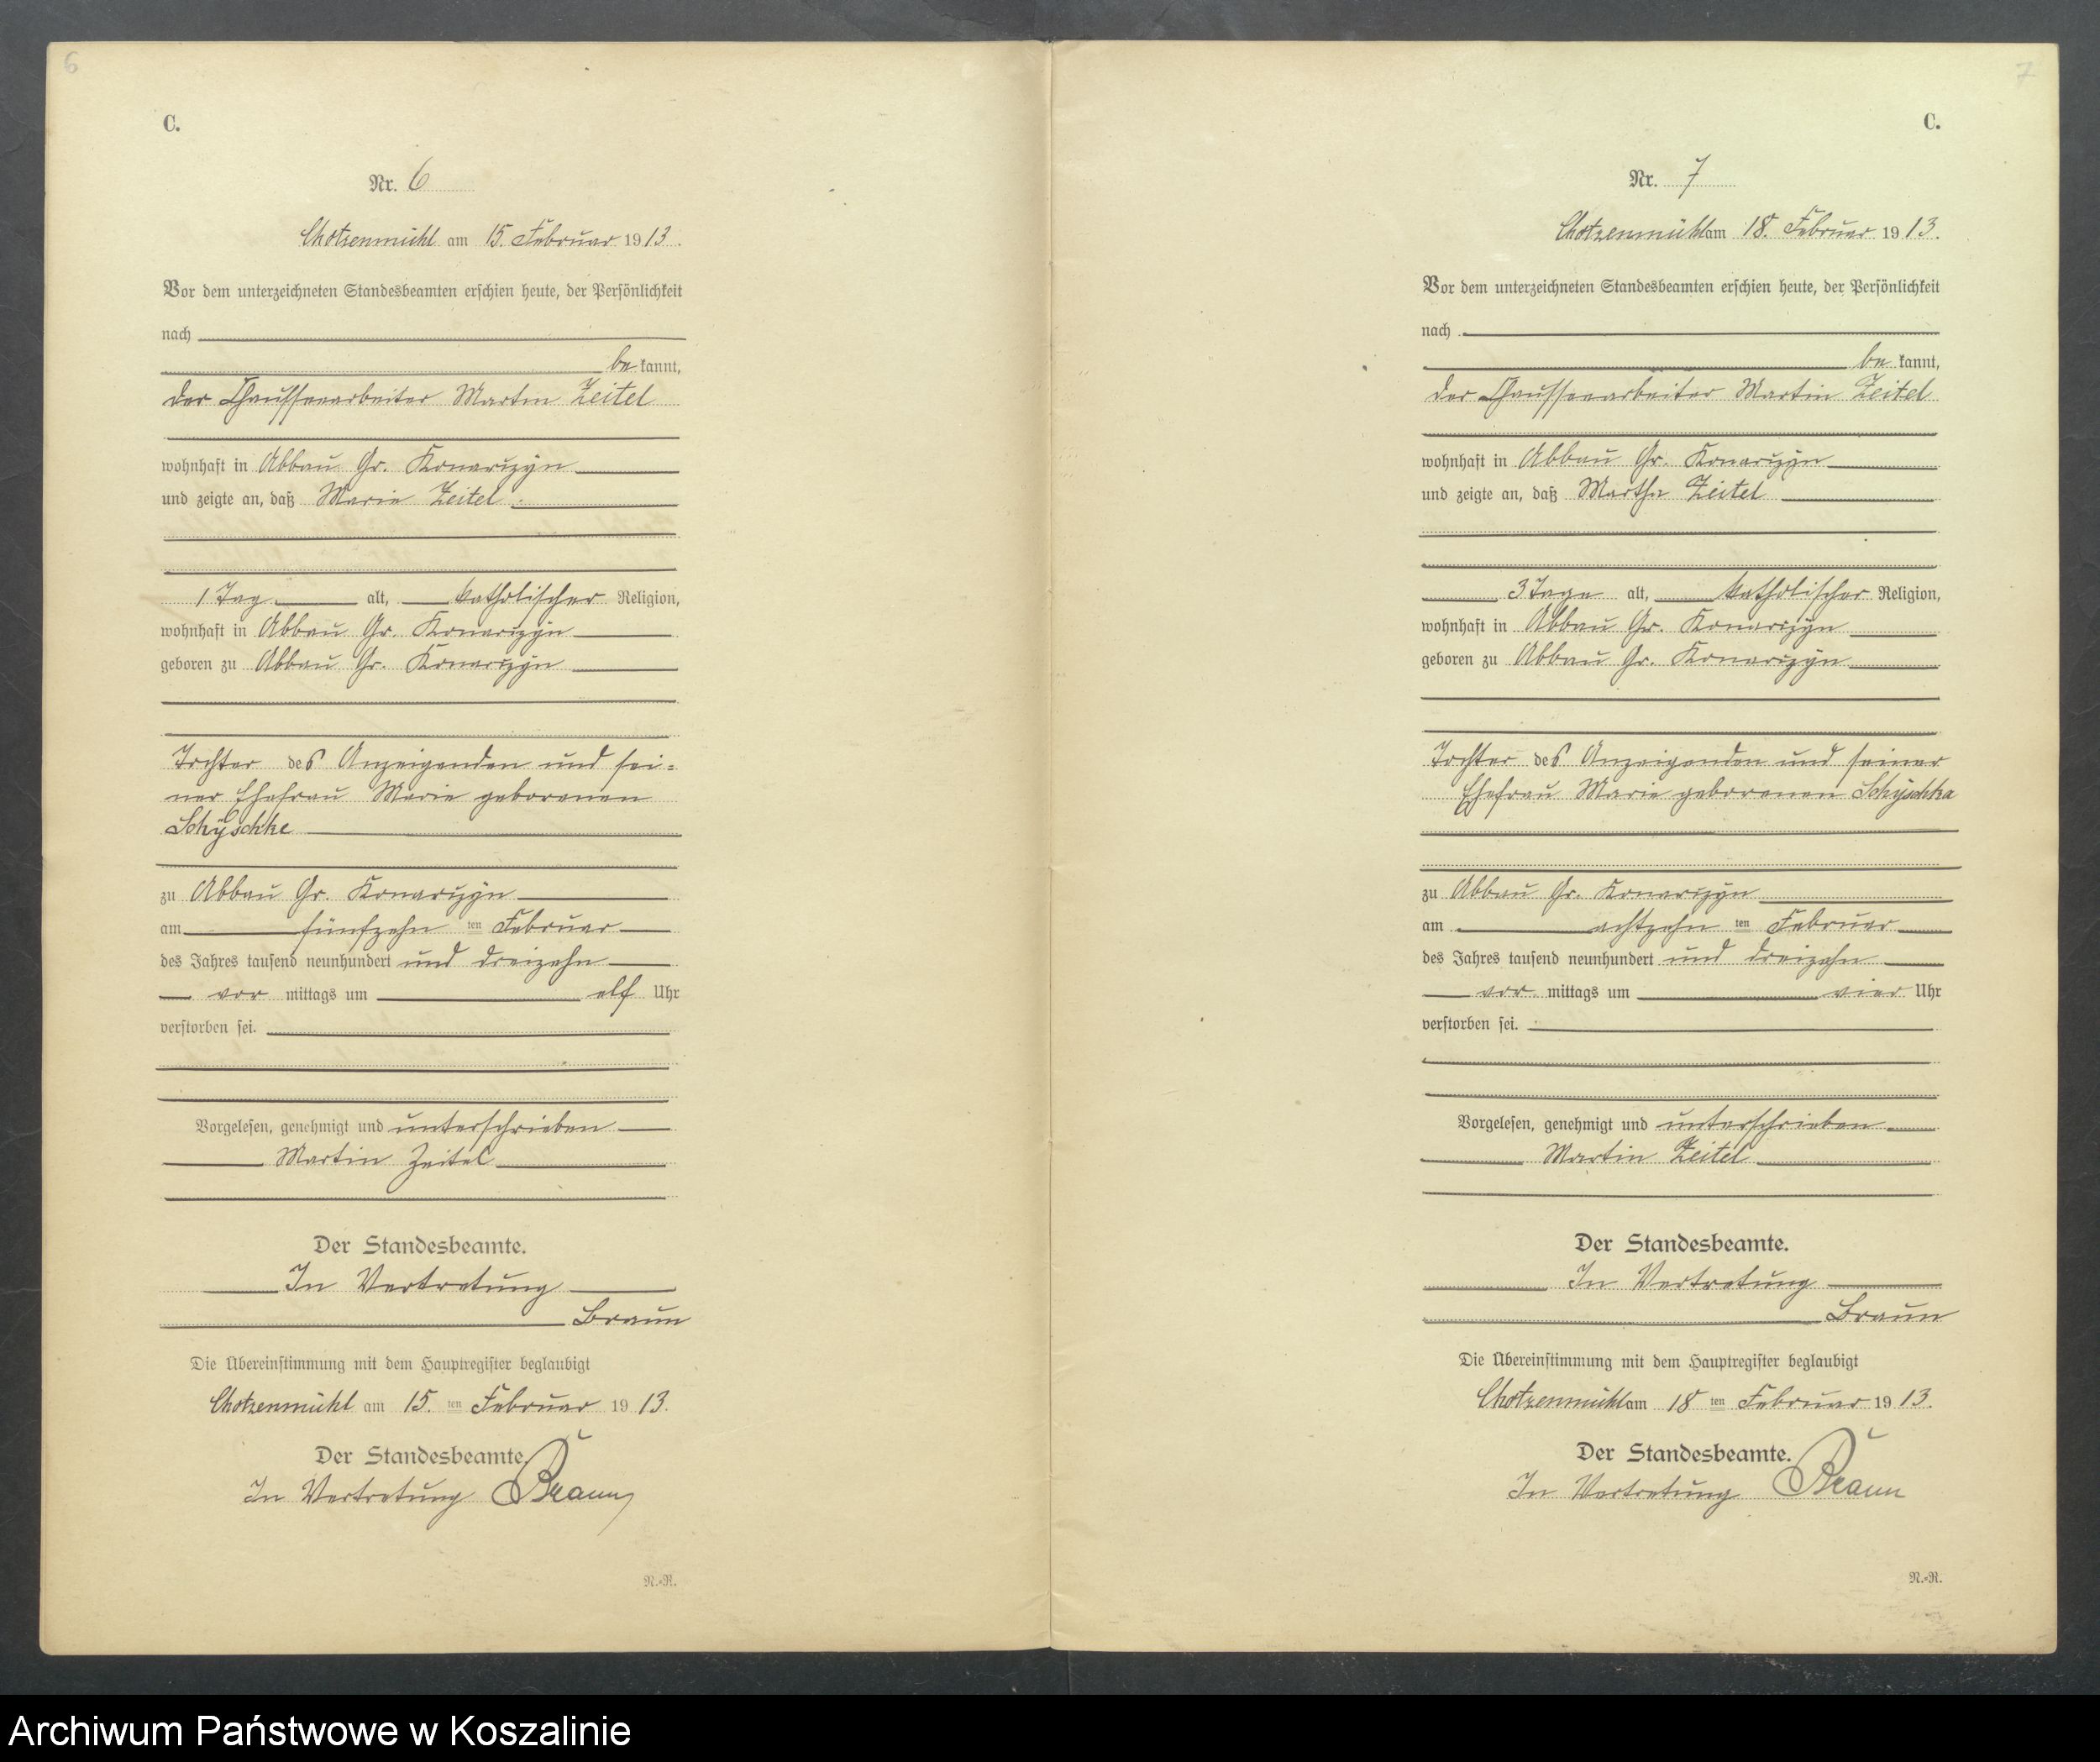 6
C.
Nr. 6
Chotzenmühl am 15. Februar 1913.
Vor dem unterzeichneten Standesbeamten erschien heute, der Persönlichkeit
nach
be kannt,
der Chausseearbeiter Martin Zeitel
wohnhaft in Abbau Gr. Konarczyn
und zeigte an, daß Marie Zeitel
1 Tag alt, katholischer Religion,
wohnhaft in Abbau Gr. Konarczyn
geboren zu Abbau Gr. Konarczyn
Tochter des Anzeigenden und sei=
ner Ehefrau Marie geborenen
Schyschke
zu Abbau Gr. Konarczyn
am fünfzehn ten Februar
des Jahres tausend neunhundert und dreizehn
vor mittags um elf Uhr
verstorben sei.
Vorgelesen, genehmigt und unterschrieben
Martin Zeitel
Der Standesbeamte.
In Vertretung
Braun
Die Übereinstimmung mit dem Hauptregister beglaubigt
Chotzenmühl am 15. ten Februar 1913.
Der Standesbeamte.
In Vertretung Braun
N.-R.
7
C.
Nr. 7
Chotzenmühl am 18. Februar 1913.
Vor dem unterzeichneten Standesbeamten erschien heute, der Persönlichkeit
nach
be kannt,
der Chausseearbeiter Martin Zeitel
wohnhaft in Abbau Gr. Konarczyn
und zeigte an, daß Martha Zeitel
3 Tage alt, katholischer Religion,
wohnhaft in Abbau Gr. Konarczyn
geboren zu Abbau Gr. Konarczyn
Tochter des Anzeigenden und seiner
Ehefrau Marie geborenen Schyschka
zu Abbau Gr. Konarczyn
am achtzehn ten Februar
des Jahres tausend neunhundert und dreizehn
vor mittags um vier Uhr
verstorben sei.
Vorgelesen, genehmigt und unterschrieben
Martin Zeitel
Der Standesbeamte.
In Vertretung
Braun
Die Übereinstimmung mit dem Hauptregister beglaubigt
Chotzenmühl am 18 ten Februar 1913.
Der Standesbeamte.
In Vertretung Braun
N.-R.
Archiwum Państwowe w Koszalinie